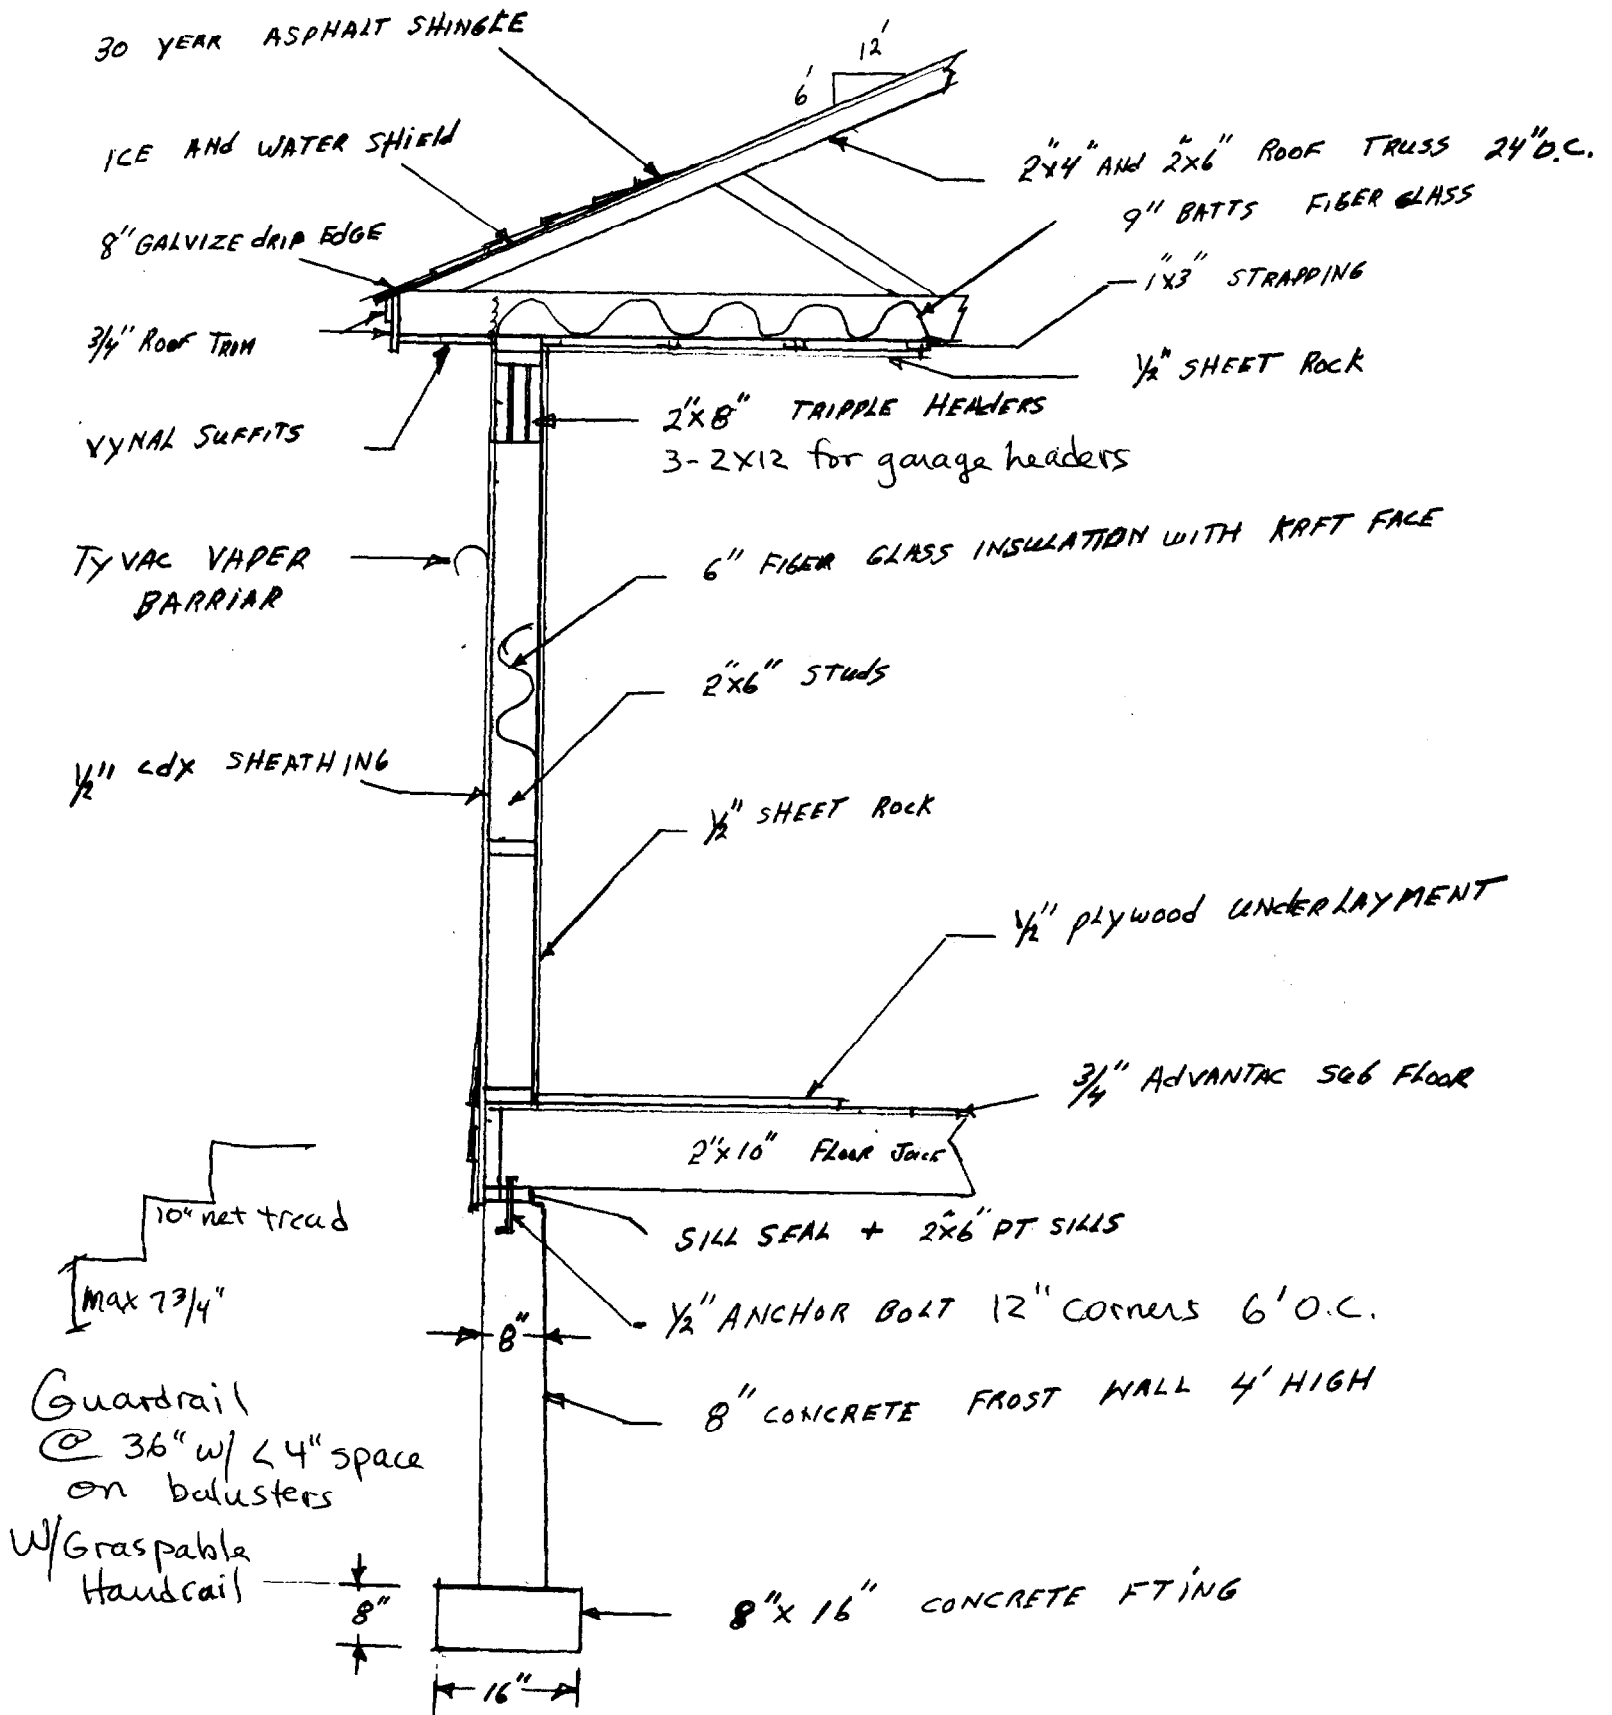 30 YEAR ASPHALT SHINGLE
12'
6'
ICE AND WATER SHIELD
2"x4" AND 2"x6" ROOF TRUSS 24" O.C.
9" BATTS FIBER GLASS
8" GALVIZE drip EDGE
1"x3" STRAPPING
3/4" ROOF TRIM
1/2" SHEET ROCK
VYNAL SUFFITS
2"x8" TRIPPLE HEADERS
3-2x12 for garage headers
TYVAC VAPER
BARRIAR
6" FIBER GLASS INSULATION WITH KRFT FACE
2"x6" STUDS
1/2" CDX SHEATHING
1/2" SHEET ROCK
1/2" PLYWOOD UNDERLAYMENT
3/4" ADVANTAC SUB FLOOR
2"x10" FLOOR
10" net tread
SILL SEAL + 2"x6" PT SILLS
max 7 3/4"
1/2" ANCHOR BOLT 12" corners 6' O.C.
8"
Guardrail
@ 36" w/ < 4" space
on balusters
8" CONCRETE FROST WALL 4' HIGH
W/Graspable
Handrail
8"
8"x16" CONCRETE FTING
16"